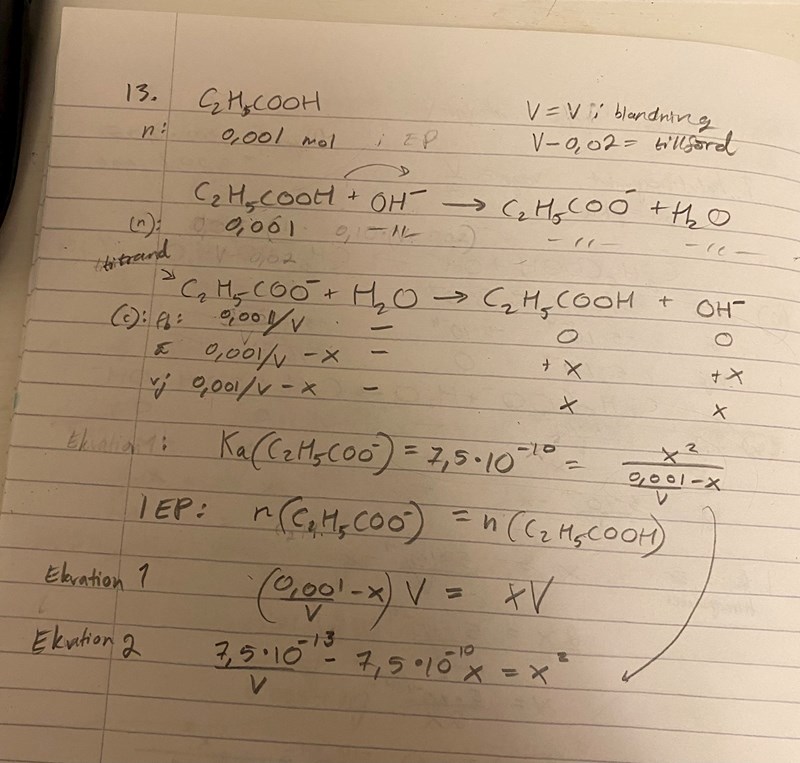 13. C₂H₅COOH V = V i blandning
n: 0,001 mol i EP V-0,02 = tillförd
C₂H₅COOH + OH⁻ → C₂H₅COO⁻ + H₂O
(n): 0,001 -〃- -〃- -〃-
titrand
C₂H₅COO⁻ + H₂O → C₂H₅COOH + OH⁻
(c): f: 0,001/V – 0 0
0,001/V - x – +x +x
vj 0,001/V - x – x x
Ekvation 1: Ka(C₂H₅COO⁻) = 7,5·10⁻¹⁰ = x² / (0,001/V - x)
I EP: n(C₂H₅COO⁻) = n(C₂H₅COOH)
Ekvation 1 (0,001/V - x) V = xV
Ekvation 2 7,5·10⁻¹³/V - 7,5·10⁻¹⁰x = x²